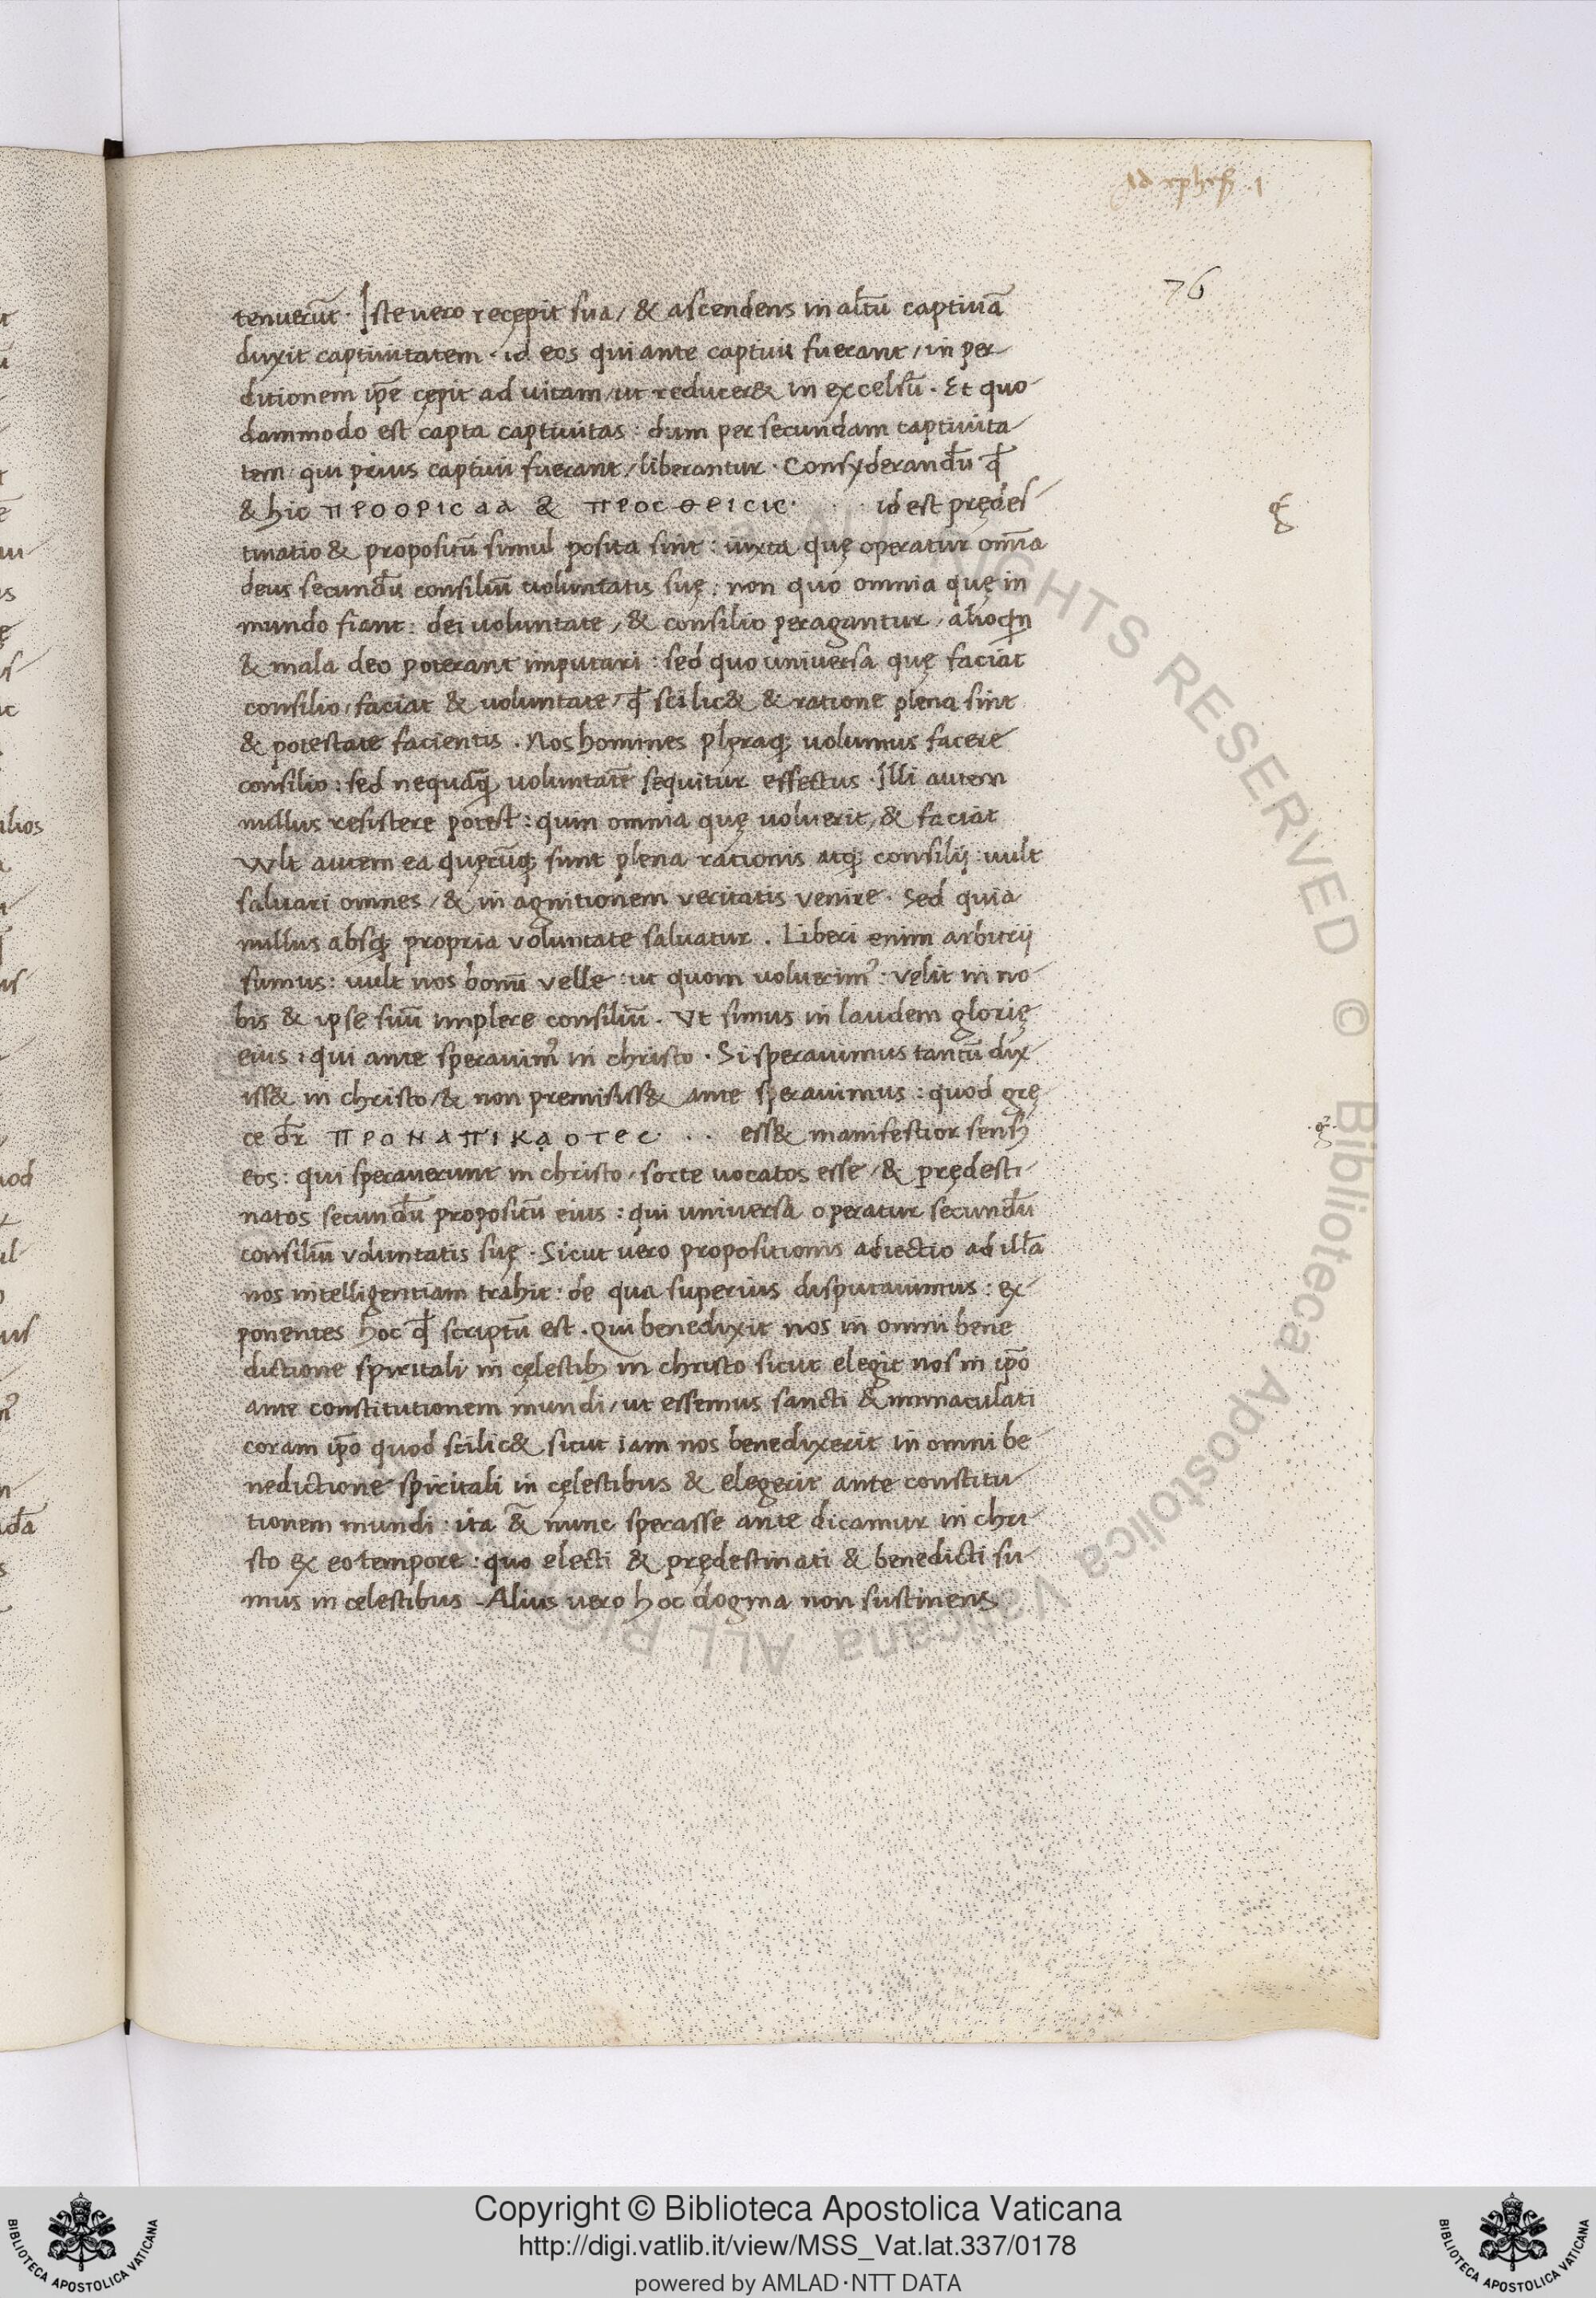 Ad ephes̄ .1
76
tenuerūt · Iste uero recępit sua / & ascendens in altū captiuā
duxit captiuitatem · id eos qui ante captiui fuerant / in per-
ditionem ip̄e cępit ad uitam / ut reducer& in excelsū · Et quo-
dammodo est capta captiuitas : dum per secundam captiuita-
tem / qui prius captiui fuerant / liberantur · Consyderandū qd̄
& hic ΠΡΟΟΡΙCΑΑ & ΠΡΟCΘΕΙCΙC · id est prędes-
tinatio & propositū simul posita sint : iuxta quę operatur om̄ia
deus secundū consiliū uoluntatis suę : non quo omnia quę in
mundo fiant : dei uoluntate / & consilio peragantur / alioqn
& mala deo poterant imputari : sed quo uniuersa quę faciat
consilio / faciat & uoluntate / qd̄ scilic& & ratione plena sint
& potestate facientis . Nos homines plęraq; uolumus facere
consilio : sed nequāq; uoluntatē sequitur effectus · Illi autem
nullus resistere potest : quin omnia quę uoluerit / & faciat
Vult autem ea quęcūq; sunt plena rationis atq; consilij : uult
saluari omnes / & in agnitionem veritatis venire · Sed quia
nullus absq; propria voluntate saluatur . Liberi enim arbitrij
sumus : uult nos bonū velle : ut quom uoluerim⁹ : velit in no-
bis & ipse suū implere consiliū . Vt simus in laudem glorię
eius : qui ante sperauim⁹ in christo · Si sperauimus tantū dix-
iss& in christo / & non premisiss& ante sperauimus : quod grę-
ce dr̄ ΠΡΟΝΑΠΙΚΑΟΤΕC · . . ess& manifestior sens⁹
eos : qui sperauerunt in christo / sorte uocatos esse / & prędesti-
natos secundū propositū eius : qui uniuersa operatur secundū
consiliū voluntatis suę · Sicut vero propositionis adiectio ad illā
nos intelligentiam trahit : de qua superius disputauimus : ex-
ponentes hoc qd̄ scriptū est . Qui benedixit nos in omni bene
dictione spiritali in cęlestib; in christo sicut elegit nos in ip̄o
ante constitutionem mundi / ut essemus sancti & immaculati
coram ip̄o quod scilic& sicut iam nos benedixerit in omni be-
nedictione spiritali in cęlestibus & elegerit ante constitu-
tionem mundi : ita &̄ nunc sperasse ante dicamur in chri-
sto ex eo tempore : quo electi & prędestinati & benedicti su-
mus in celestibus - Alius vero hoc dogma non sustinens
© Biblioteca Apostolica Vaticana ALL RIGHTS RESERVED
Copyright © Biblioteca Apostolica Vaticana
http://digi.vatlib.it/view/MSS_Vat.lat.337/0178
powered by AMLAD·NTT DATA
BIBLIOTECA APOSTOLICA VATICANA
BIBLIOTECA APOSTOLICA VATICANA